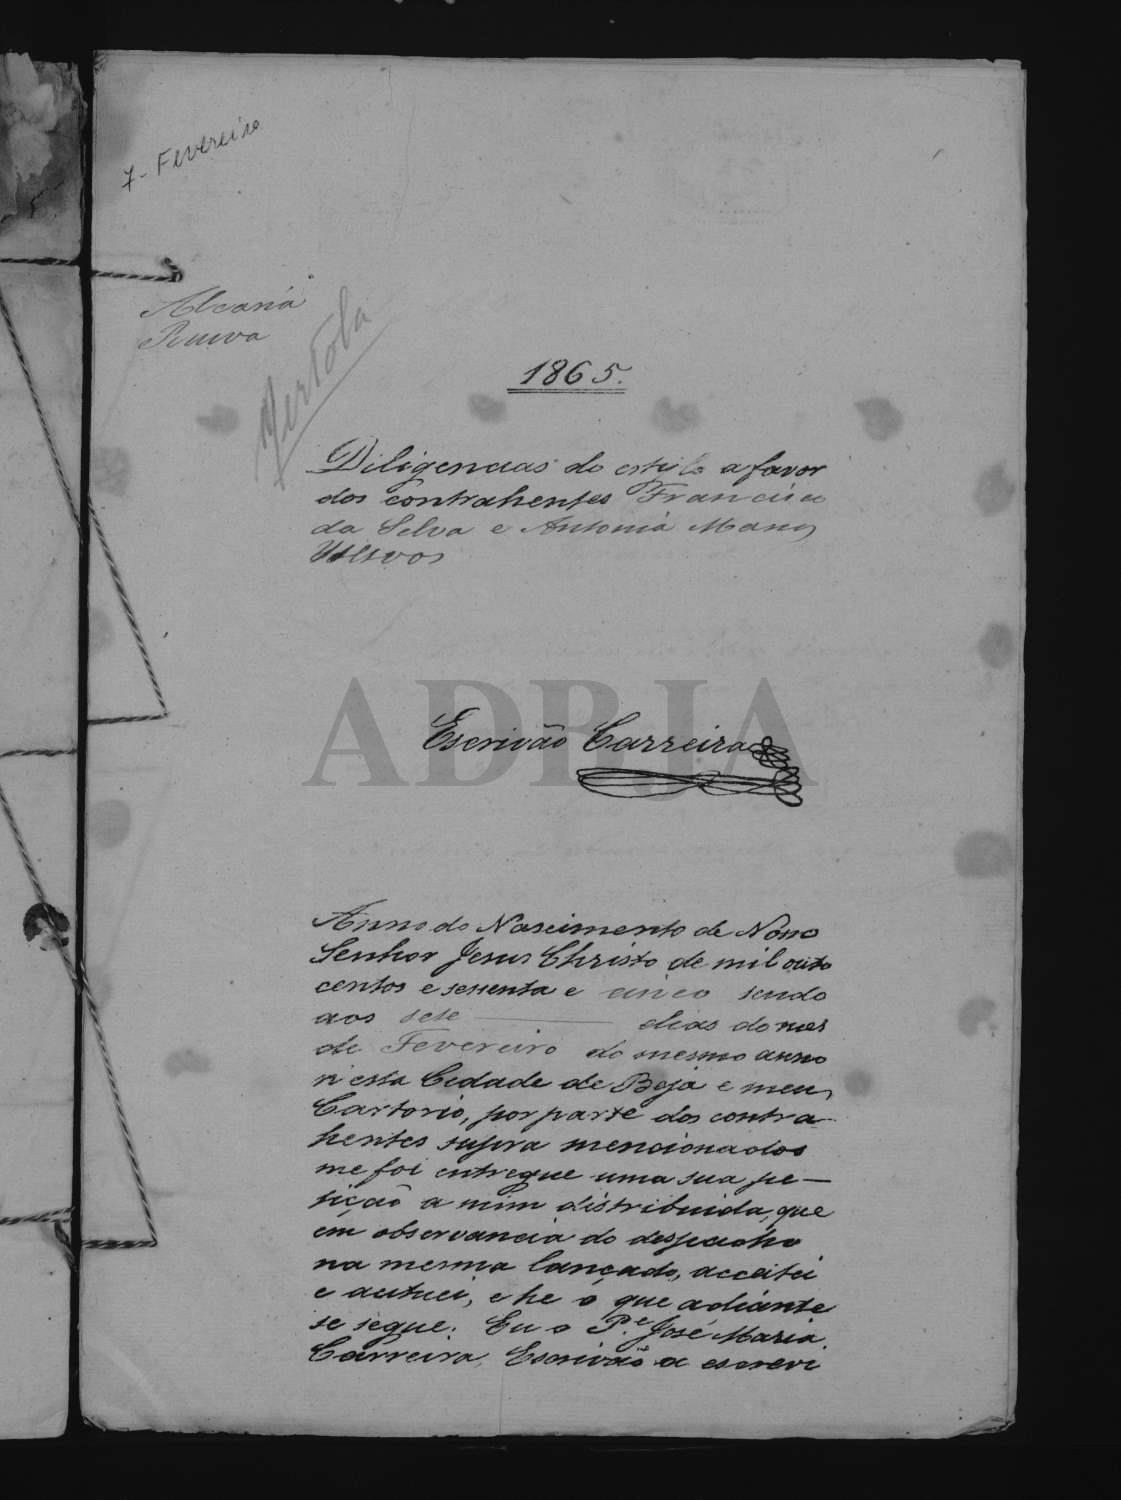 7- Fevereiro
Alcaria
Ruiva
Mertola
1865.
Diligencias do estilo a favor
dos contrahentes Francisco
da Selva e Antonia Maria
Escrivão Carreira
ADBJA
Anno do Nascimento de Nosso
Senhor Jesus Christo de mil outo
centos e sessenta e cinco sendo
aos sete dias do mes
de Fevereiro do mesmo anno
n'esta Cedade de Beja e meu
Cartorio, por parte dos contra
hentes supra mencionados
me foi entregue uma sua pe-
tição a mim distribuida, que
em observancia do despacho
na mesma lançado, acceitei
e autuei, e he o que adiante
se segue. Eu o P.e José Maria
Carreira, Escrivão a escrevi